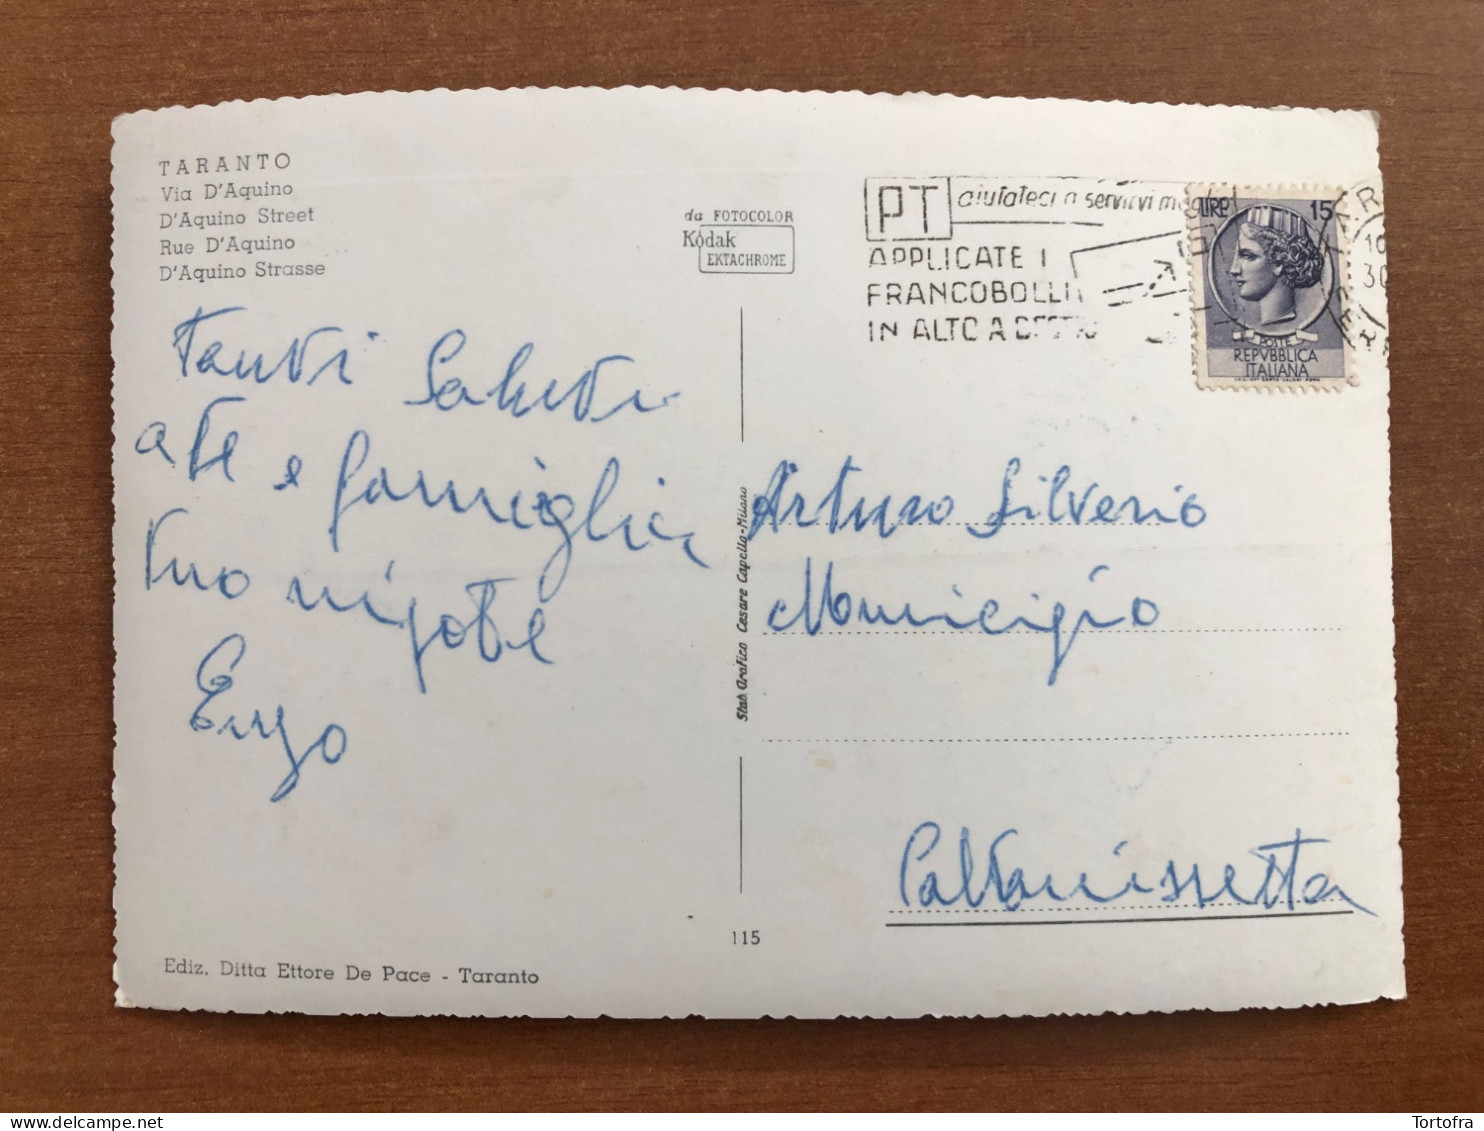 TARANTO
Via D'Aquino
D'Aquino Street
Rue D'Aquino
D'Aquino Strasse
da FOTOCOLOR
Kodak
EKTACHROME
PT aiutateci a servirvi
APPLICATE I
FRANCOBOLLI
IN ALTO A
LIRE 15
POSTE
REPVBBLICA
ITALIANA
10
30
Tanti Saluti
a te e famiglia
tuo nipote
Enzo
Stab. Grafico Cesare Capello - Milano
Arturo Silverio
Municipio
Caltanissetta
115
Ediz. Ditta Ettore De Pace - Taranto
Tortofra